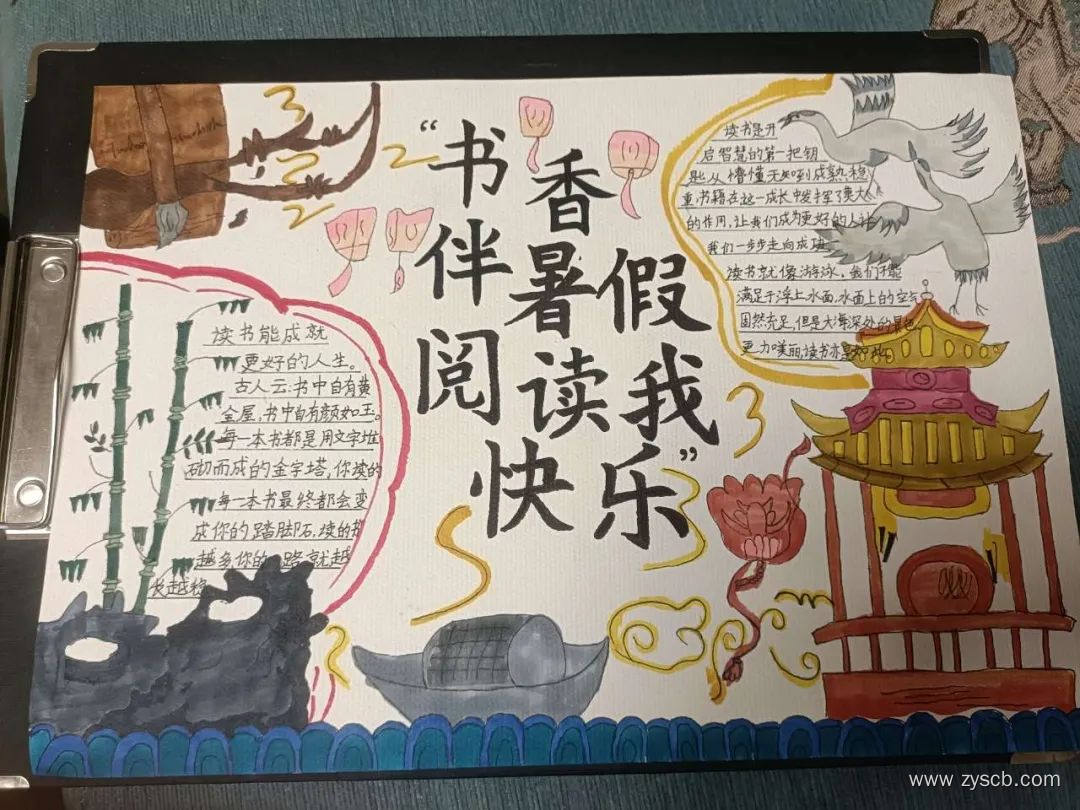 “书香
伴暑假
阅读我
快乐”
读书能成就
更好的人生。
古人云:书中自有黄
金屋,书中自有颜如玉。
每一本书都是用文字堆
砌而成的金字塔,你读的
每一本书最终都会变
成你的踏脚石,读的
越多,你的路就越
越稳
读书是开
启智慧的第一把钥
匙,从懵懂无知到成熟稳
重,书籍在这一成长中发挥了莫大
的作用,让我们成为更好的人,让
我们一步步走向成功
读书就像游泳,我们不能
满足于浮上水面,水面上的空气
固然充足,但是大海深处的景色
更加美丽,读书亦是如此。
www.zyscb.com